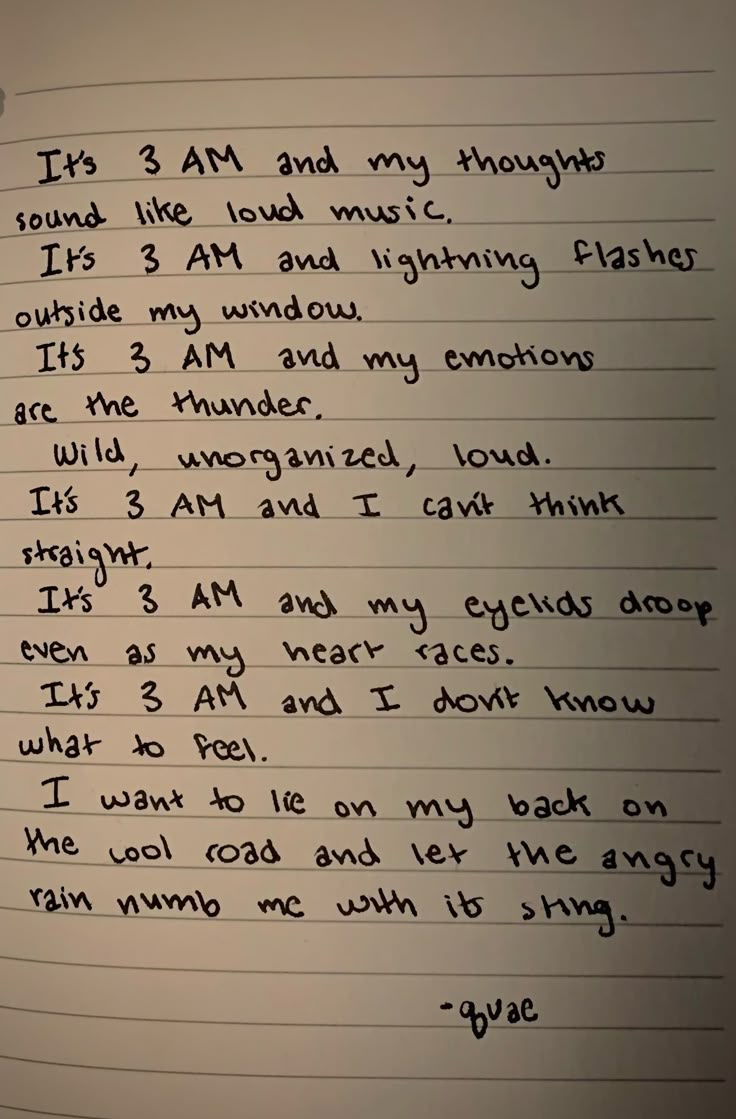 It's 3 AM and my thoughts
sound like loud music.
It's 3 AM and lightning flashes
outside my window.
It's 3 AM and my emotions
are the thunder.
Wild, unorganized, loud.
It's 3 AM and I can't think
straight.
It's 3 AM and my eyelids droop
even as my heart races.
It's 3 AM and I don't know
what to feel.
I want to lie on my back on
the cool road and let the angry
rain numb me with its sting.
-quae